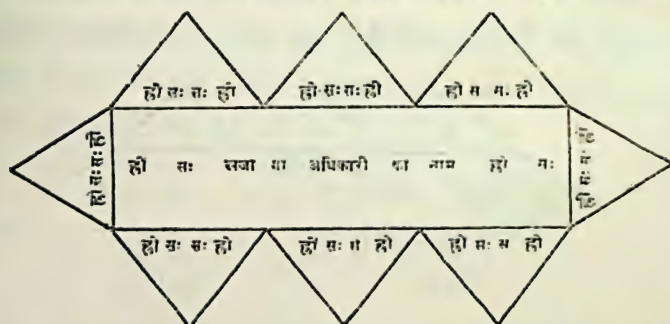 ह्रीं सः सः ह्रीं
ह्रीं सः सः ह्रीं
ह्रीं स म. ह्रीं
ह्रीं सः सः ह्रीं
ह्रीं सः या अधिकारी का नाम ह्रीं
ह्रीं सः सः ह्रीं
ह्रीं सः सः ह्रीं
ह्रीं सः ह्रीं
ह्रीं सः स ह्रीं